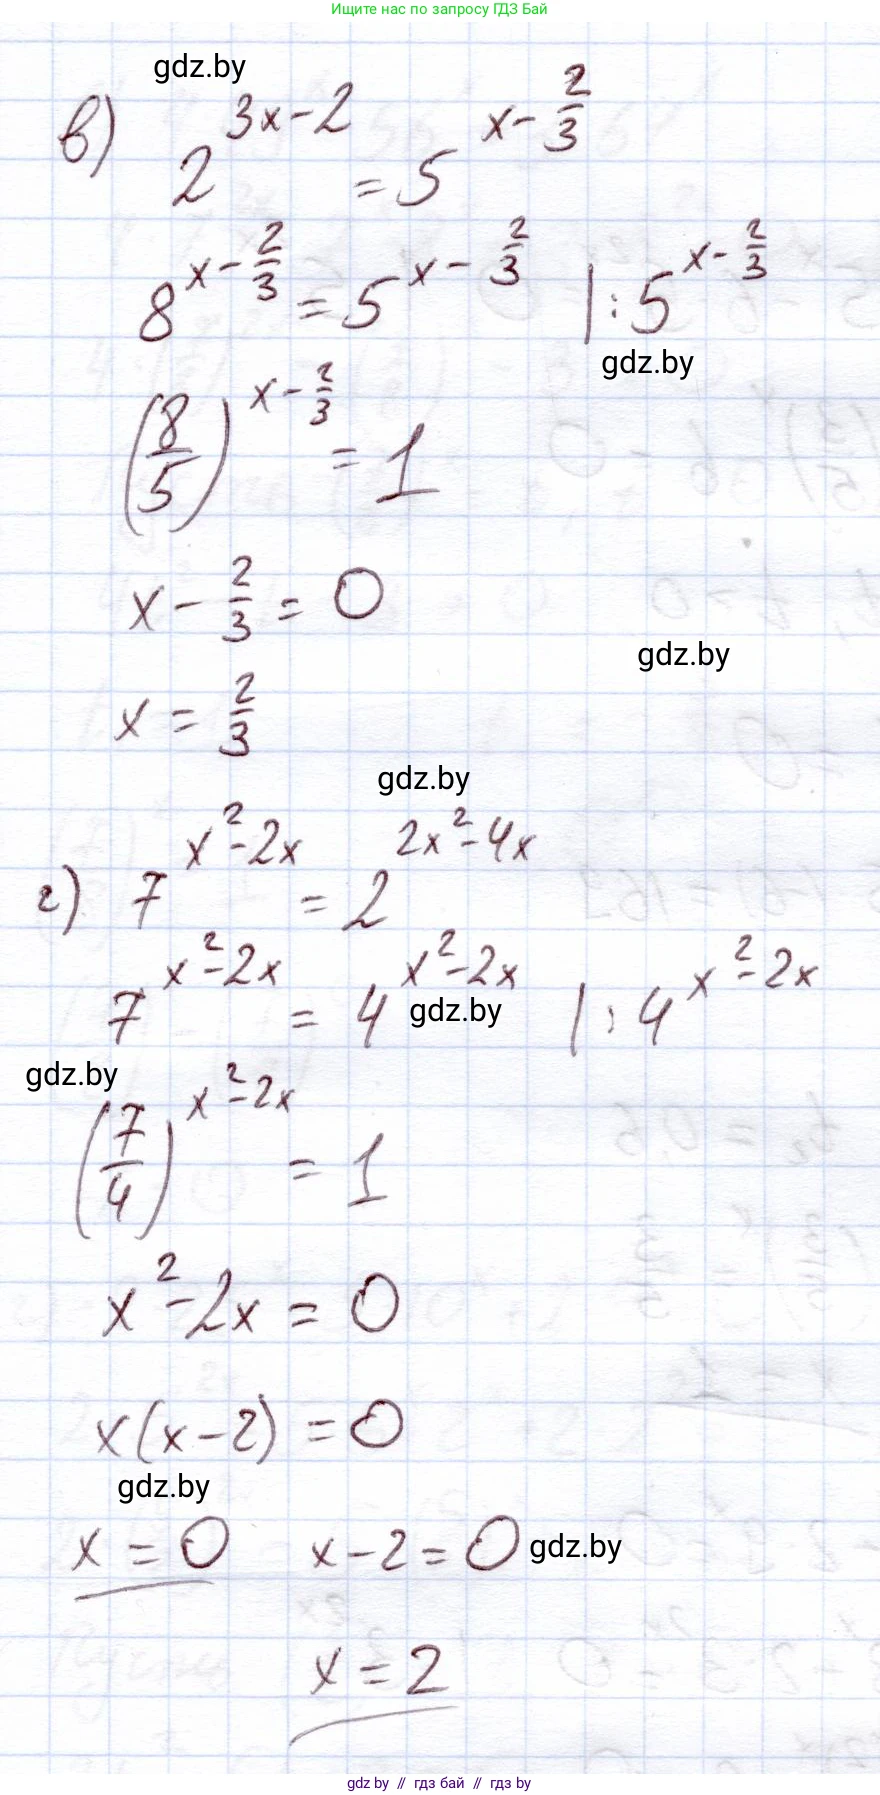 Ищите нас по запросу ГДЗ Бай
gdz.by
в) 2^{3x-2} = 5^{x-\frac{2}{3}}
8^{x-\frac{2}{3}} = 5^{x-\frac{2}{3}} |:5^{x-\frac{2}{3}}
gdz.by
(\frac{8}{5})^{x-\frac{2}{3}} = 1
x - \frac{2}{3} = 0
gdz.by
x = \frac{2}{3}
gdz.by
г) 7^{x^2-2x} = 2^{2x^2-4x}
7^{x^2-2x} = 4^{x^2-2x} |:4^{x^2-2x}
gdz.by
gdz.by
(\frac{7}{4})^{x^2-2x} = 1
x^2-2x = 0
x(x-2) = 0
gdz.by
x = 0 x-2 = 0
gdz.by
x = 2
gdz.by // гдз бай // гдз by